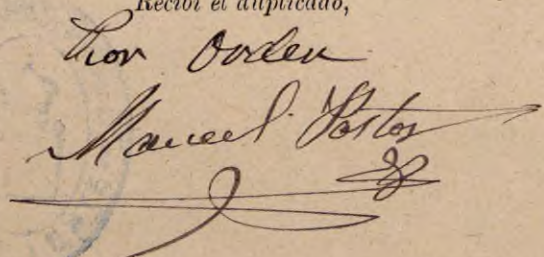 Recibí el duplicado,
Por Orden
Manuel Pastor